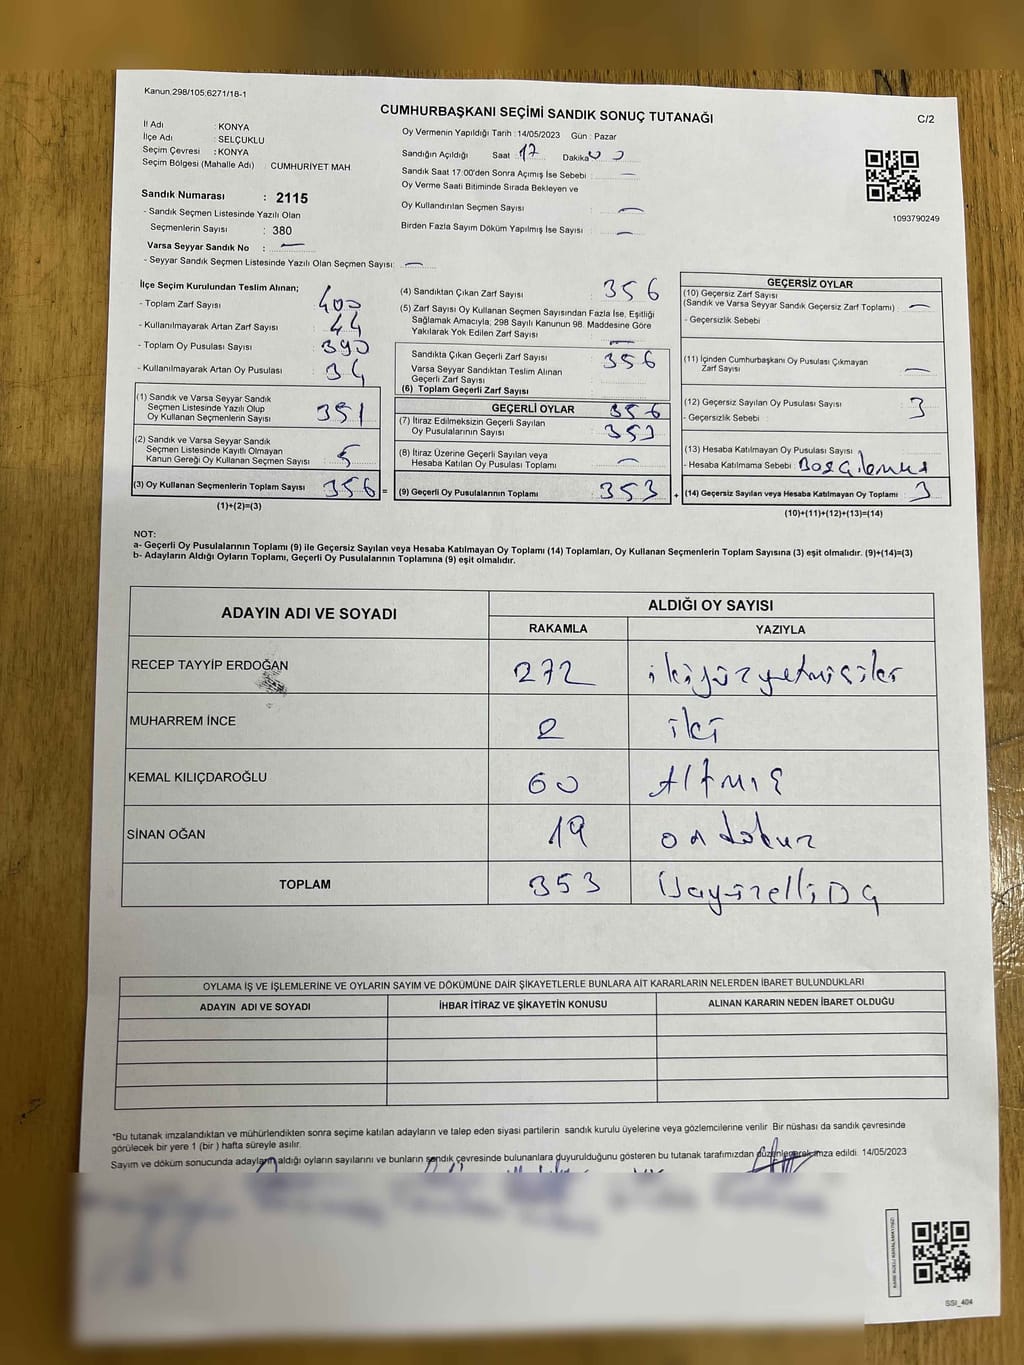 Kanun 298/105;6271/18-1
CUMHURBAŞKANI SEÇİMİ SANDIK SONUÇ TUTANAĞI
C/2
İl Adı : KONYA
İlçe Adı : SELÇUKLU
Seçim Çevresi : KONYA
Seçim Bölgesi (Mahalle Adı) CUMHURİYET MAH
Sandık Numarası : 2115
- Sandık Seçmen Listesinde Yazılı Olan
Seçmenlerin Sayısı : 380
Varsa Seyyar Sandık No : —
- Seyyar Sandık Seçmen Listesinde Yazılı Olan Seçmen Sayısı: —
Oy Vermenin Yapıldığı Tarih : 14/05/2023 Gün : Pazar
Sandığın Açıldığı Saat 17 Dakika 00
Sandık Saat 17:00'den Sonra Açımış İse Sebebi : —
Oy Verme Saati Bitiminde Sırada Bekleyen ve
Oy Kullandırılan Seçmen Sayısı : —
Birden Fazla Sayım Döküm Yapılmış İse Sayısı : —
1093790249
İlçe Seçim Kurulundan Teslim Alınan;
- Toplam Zarf Sayısı : 400
- Kullanılmayarak Artan Zarf Sayısı : 44
- Toplam Oy Pusulası Sayısı : 390
- Kullanılmayarak Artan Oy Pusulası : 34
(1) Sandık ve Varsa Seyyar Sandık
Seçmen Listesinde Yazılı Olup
Oy Kullanan Seçmenlerin Sayısı : 351
(2) Sandık ve Varsa Seyyar Sandık
Seçmen Listesinde Kayıtlı Olmayan
Kanun Gereği Oy Kullanan Seçmen Sayısı : 5
(3) Oy Kullanan Seçmenlerin Toplam Sayısı : 356 =
(1)+(2)=(3)
(4) Sandıktan Çıkan Zarf Sayısı : 356
(5) Zarf Sayısı Oy Kullanan Seçmen Sayısından Fazla İse, Eşitliği
Sağlamak Amacıyla; 298 Sayılı Kanunun 98. Maddesine Göre
Yakılarak Yok Edilen Zarf Sayısı : —
Sandıkta Çıkan Geçerli Zarf Sayısı : 356
Varsa Seyyar Sandıktan Teslim Alınan
Geçerli Zarf Sayısı :
(6) Toplam Geçerli Zarf Sayısı :
GEÇERLİ OYLAR 356
(7) İtiraz Edilmeksizin Geçerli Sayılan
Oy Pusulalarının Sayısı : 353
(8) İtiraz Üzerine Geçerli Sayılan veya
Hesaba Katılan Oy Pusulası Toplamı : —
(9) Geçerli Oy Pusulalarının Toplamı : 353 +
GEÇERSİZ OYLAR
(10) Geçersiz Zarf Sayısı
(Sandık ve Varsa Seyyar Sandık Geçersiz Zarf Toplamı) : —
- Geçersizlik Sebebi :
(11) İçinden Cumhurbaşkanı Oy Pusulası Çıkmayan
Zarf Sayısı : —
(12) Geçersiz Sayılan Oy Pusulası Sayısı : 3
- Geçersizlik Sebebi :
(13) Hesaba Katılmayan Oy Pusulası Sayısı :
- Hesaba Katılmama Sebebi :
(14) Geçersiz Sayılan veya Hesaba Katılmayan Oy Toplamı : 3
(10)+(11)+(12)+(13)=(14)
NOT:
a- Geçerli Oy Pusulalarının Toplamı (9) ile Geçersiz Sayılan veya Hesaba Katılmayan Oy Toplamı (14) Toplamları, Oy Kullanan Seçmenlerin Toplam Sayısına (3) eşit olmalıdır. (9)+(14)=(3)
b- Adayların Aldığı Oyların Toplamı, Geçerli Oy Pusulalarının Toplamına (9) eşit olmalıdır.
ADAYIN ADI VE SOYADI ALDIĞI OY SAYISI
RAKAMLA YAZIYLA
RECEP TAYYİP ERDOĞAN 272 ikiyüzyetmişiki
MUHARREM İNCE 2 iki
KEMAL KILIÇDAROĞLU 60 Altmış
SİNAN OĞAN 19 on dokuz
TOPLAM 353
OYLAMA İŞ VE İŞLEMLERİNE VE OYLARIN SAYIM VE DÖKÜMÜNE DAİR ŞİKAYETLERLE BUNLARA AİT KARARLARIN NELERDEN İBARET BULUNDUKLARI
ADAYIN ADI VE SOYADI İHBAR İTİRAZ VE ŞİKAYETİN KONUSU ALINAN KARARIN NEDEN İBARET OLDUĞU
*Bu tutanak imzalandıktan ve mühürlendikten sonra seçime katılan adayların ve talep eden siyasi partilerin sandık kurulu üyelerine veya gözlemcilerine verilir Bir nüshası da sandık çevresinde
görülecek bir yere 1 (bir ) hafta süreyle asılır.
Sayım ve döküm sonucunda adayların aldığı oyların sayılarını ve bunların sandık çevresinde bulunanlara duyurulduğunu gösteren bu tutanak tarafımızdan düzenlenerek imza edildi. 14/05/2023
SSI_404